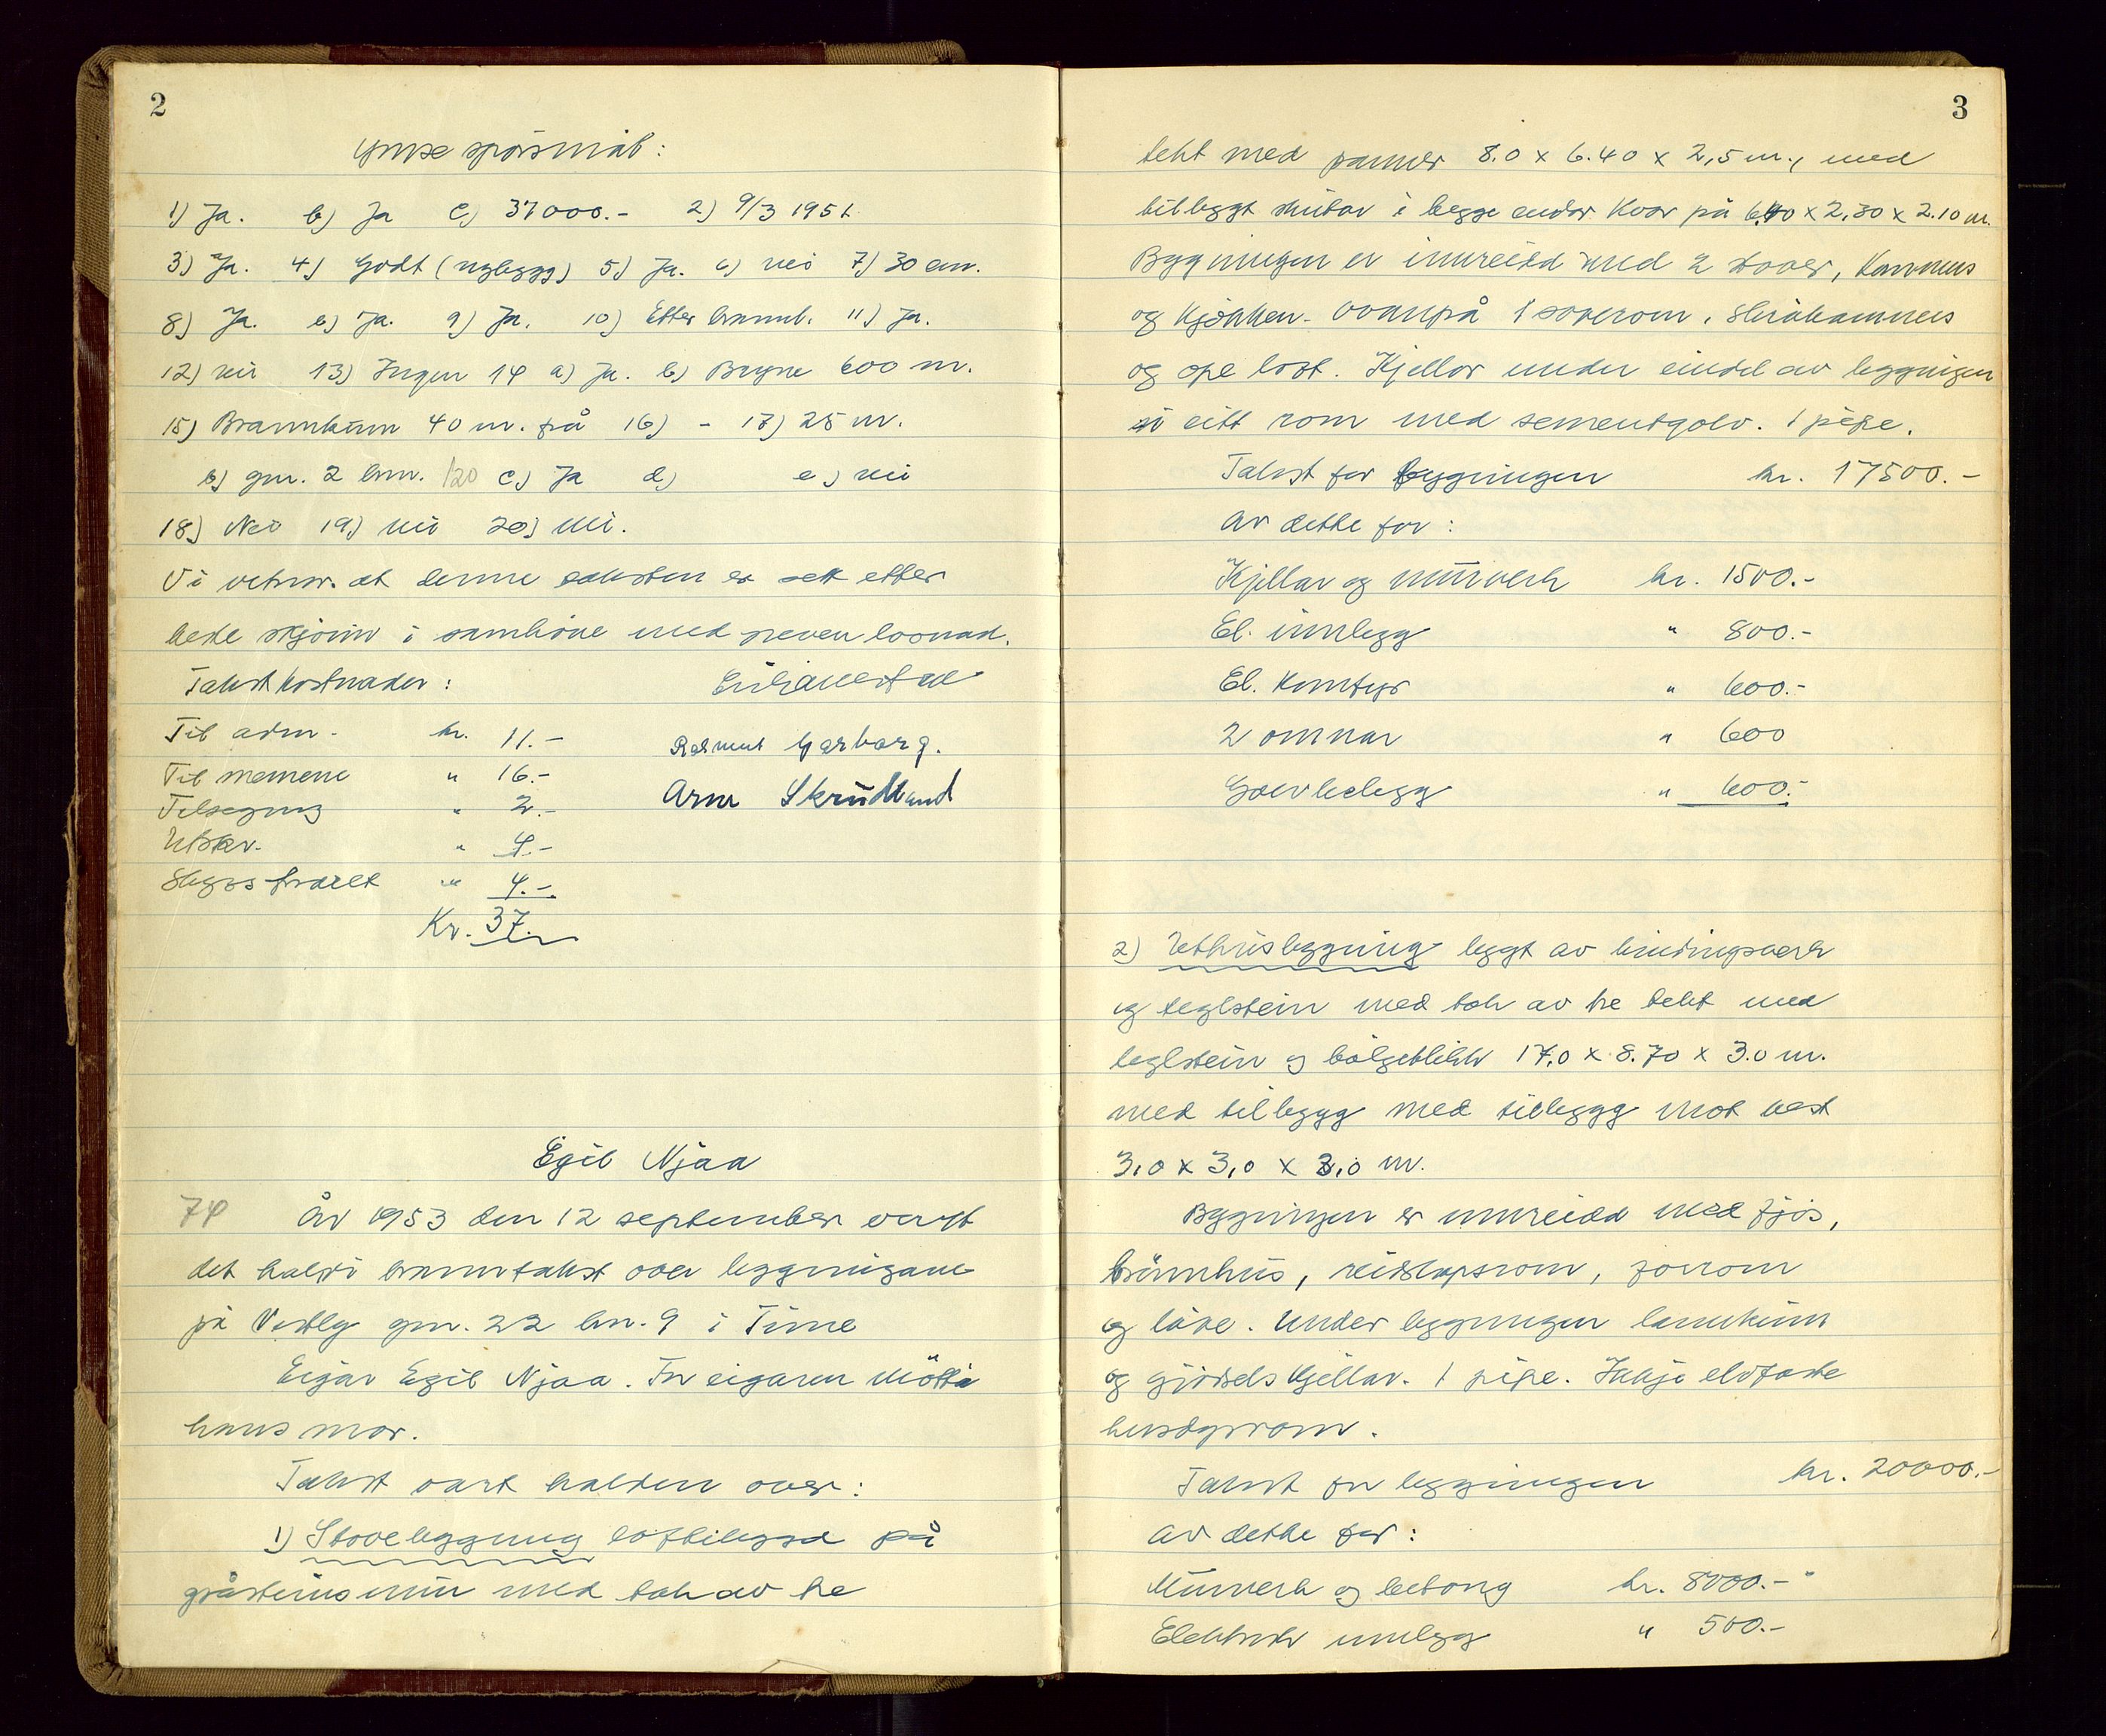 2
Ymse spörsmål:
1) Ja. b) Ja c) 37000.- 2) 9/3 1951
3) Ja. 4) Godt (nybygg) 5) Ja. 6) nei 7) 30 cm.
8) Ja. b) Ja. 9) Ja. 10) Etter brannl. 11) Ja.
12) nei 13) Ingen 14 a) Ja. b) Bryne 600 m.
15) Brannkum 40 m. frå 16) - 17) 25 m.
b) gnr. 2 bnr. 120 c) Ja d) e) nei
18) Nei 19) nei 20) nei.
Vi vitnar at denne taksten er sett etter
beste skjönn i samhöve med prenen loonad.
Takstkostnader:
Til adm. kr. 11.-
Rasmus Garborg.
Til mennene " 16.-
Arne Skrudland
Tilseging " 2.-
Utskr. " 4.-
Skyssfradelt " 4.-
Kr. 37.-
Egil Njaa
74 År 1953 den 12 september vart
det halde branntakst over bygningane
på Vestly gnr. 22 bnr. 9 i Time
Eigar Egil Njaa. For eigaren mötte
hans mor.
Takst vart halden over:
1) Stovebygning loftbygd på
gråsteinsmur med tak av tre
3
tekt med panner 8.0 x 6.40 x 2,5 m., med
tilbygt skutar i begge endar kvar på 6.40 x 2,30 x 2.10 m.
Bygningen er innreidd med 2 stover, kammers
og kjökken. Ovanpå 1 soverom, skråkammers
og ope loft. Kjellar under eindel av bygningen
i eitt rom med sementgolv. 1 pipe.
Takst for bygningen kr. 17500.-
Av dette for:
Kjellar og murverk kr. 1500.-
El. innlegg " 800.-
El. komfyr " 600.-
2 omnar " 600
Golvbelegg " 600.-
2) Uthusbygning bygt av bindingsverk
og teglstein med tak av tre tekt med
teglstein og bölgeblikk 17,0 x 8.70 x 3.0 m.
med tilbygg med tilbygg mot vest
3,0 x 3,0 x 3,0 m.
Bygningen er innreidd med fjös,
brönnhus, reidskapsrom, forrom
og låve. Under bygningen landkum
og gjödselskjellar. 1 pipe. Ikkje eldfaste
husdyrrom.
Takst for bygningen kr. 20000.-
Av dette for:
Murverk og betong kr. 8000.-
Elektrisk innlegg " 500.-